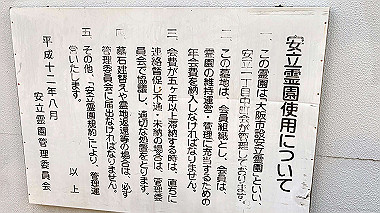 安立霊園使用について
一、この霊園は大阪市設安立霊園といい、
安立一丁目中出会が管理しております。
二、この墓地は、会員組織とし、会員は、
霊園の維持運営・管理に充当するための
年会費を納入しなければなりません。
三、会費が五ヶ年以上滞納する時は、直ちに
連絡督促し不通・未納の場合は、管理委
員会で協議し、適切な処置をとります。
四、墓石建替えや霊地返還等の場合は、必ず
管理委員会に届出なければなりません。
五、その他、「安立霊園規約」により、管理運
営いたします。
以上
平成十二年八月
安立霊園管理委員会